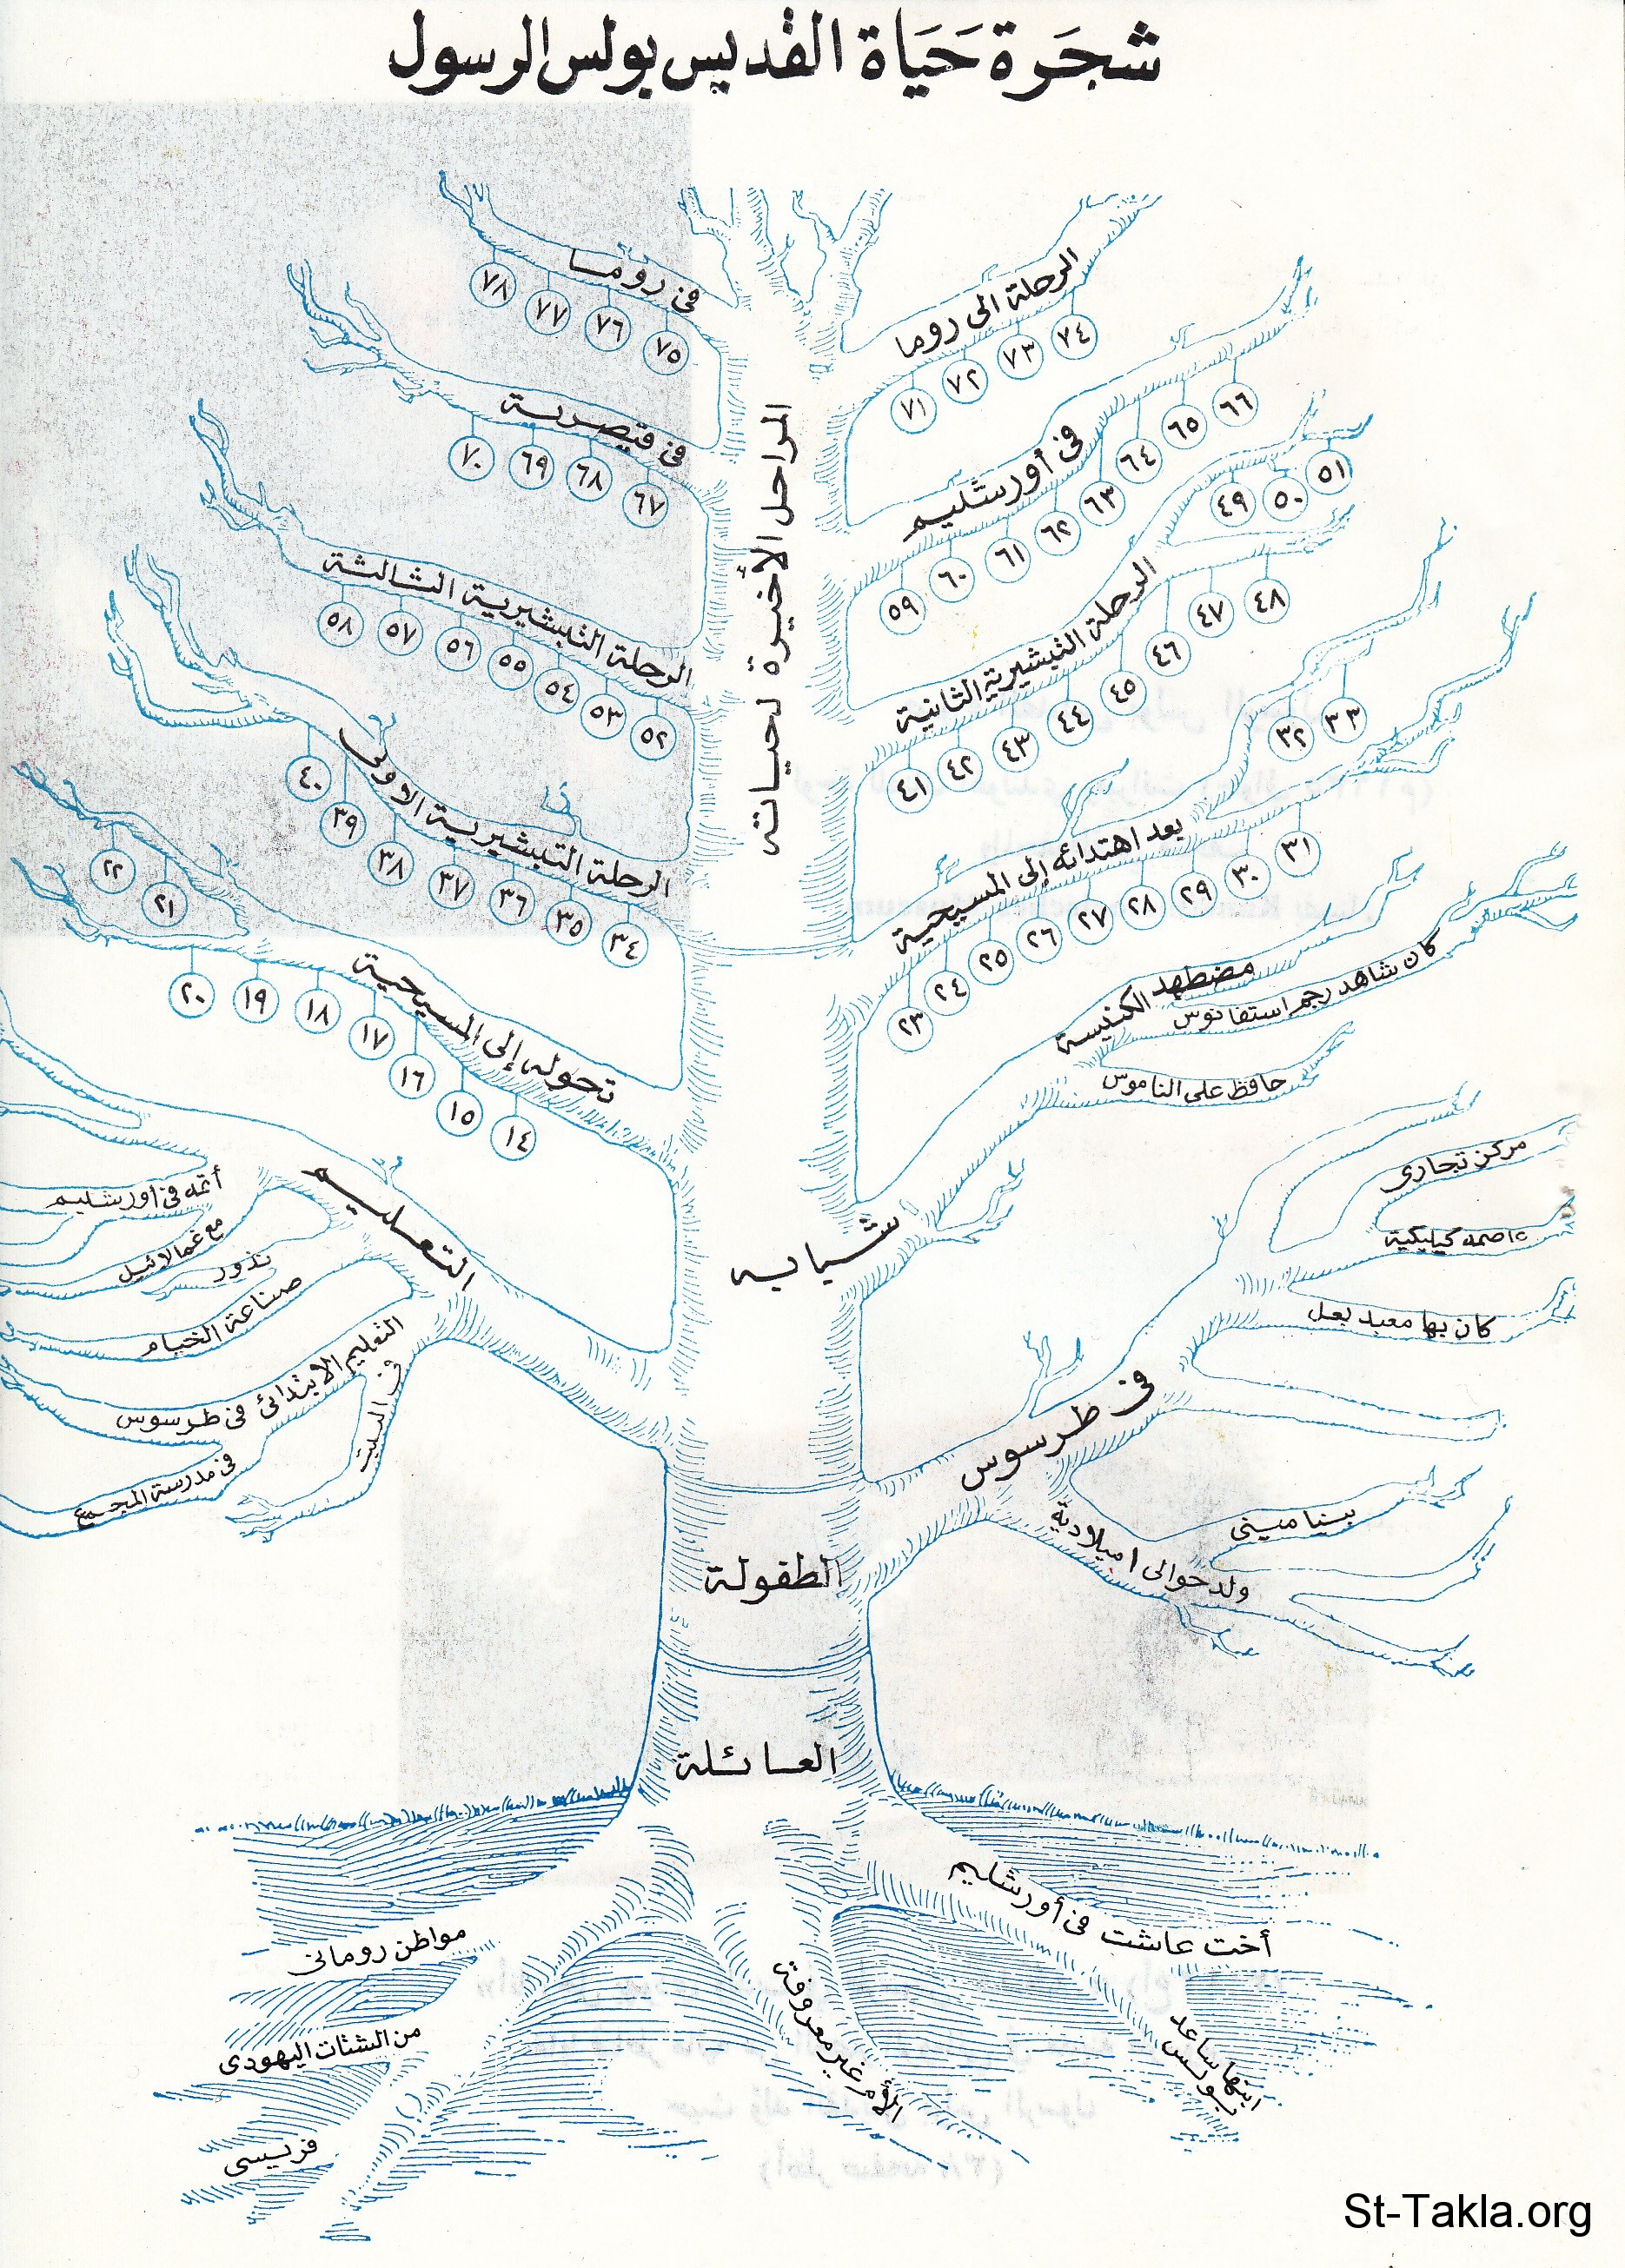 شجَرة حَيَاة القديس بولس الرسول
فى روما
٧٨ ٧٧ ٧٦ ٧٥
الرحلة الى روما
٧١ ٧٢ ٧٣ ٧٤
فى قيصرية
٧٠ ٦٩ ٦٨ ٦٧
فى أورشليم
٥٩ ٦٠ ٦١ ٦٢ ٦٣ ٦٤ ٦٥ ٦٦
المراحل الأخيرة لحياته
الرحلة التبشيرية الثالثة
٥٨ ٥٧ ٥٦ ٥٥ ٥٤ ٥٣ ٥٢
الرحلة التبشيرية الثانية
٤١ ٤٢ ٤٣ ٤٤ ٤٥ ٤٦ ٤٧ ٤٨
٤٩ ٥٠ ٥١
الرحلة التبشيرية الاولى
٤٠ ٣٩ ٣٨ ٣٧ ٣٦ ٣٥ ٣٤
بعد اهتدائه إلى المسيحية
٢٣ ٢٤ ٢٥ ٢٦ ٢٧ ٢٨ ٢٩ ٣٠ ٣١
٣٢ ٣٣
تحوله إلى المسيحية
٢٢ ٢١
٢٠ ١٩ ١٨ ١٧ ١٦ ١٥ ١٤
مضطهد الكنيسة
كان شاهد رجم استفانوس
حافظ على الناموس
شبابه
التعليم
أتمه فى أورشليم
مع غمالائيل
نذور
صناعة الخيام
التعليم الابتدائى فى طرسوس
فى البيت
فى مدرسة المجمع
مركز تجارى
عاصمة كيليكية
كان بها معبد بعل
فى طرسوس
بنيامينى
ولد حوالى ١ ميلادية
الطفولة
العائلة
أخت عاشت فى أورشليم
ابنها ساعد
بولس
الأم غير معروفة
مواطن رومانى
من الشتات اليهودى
فريسى
St-Takla.org